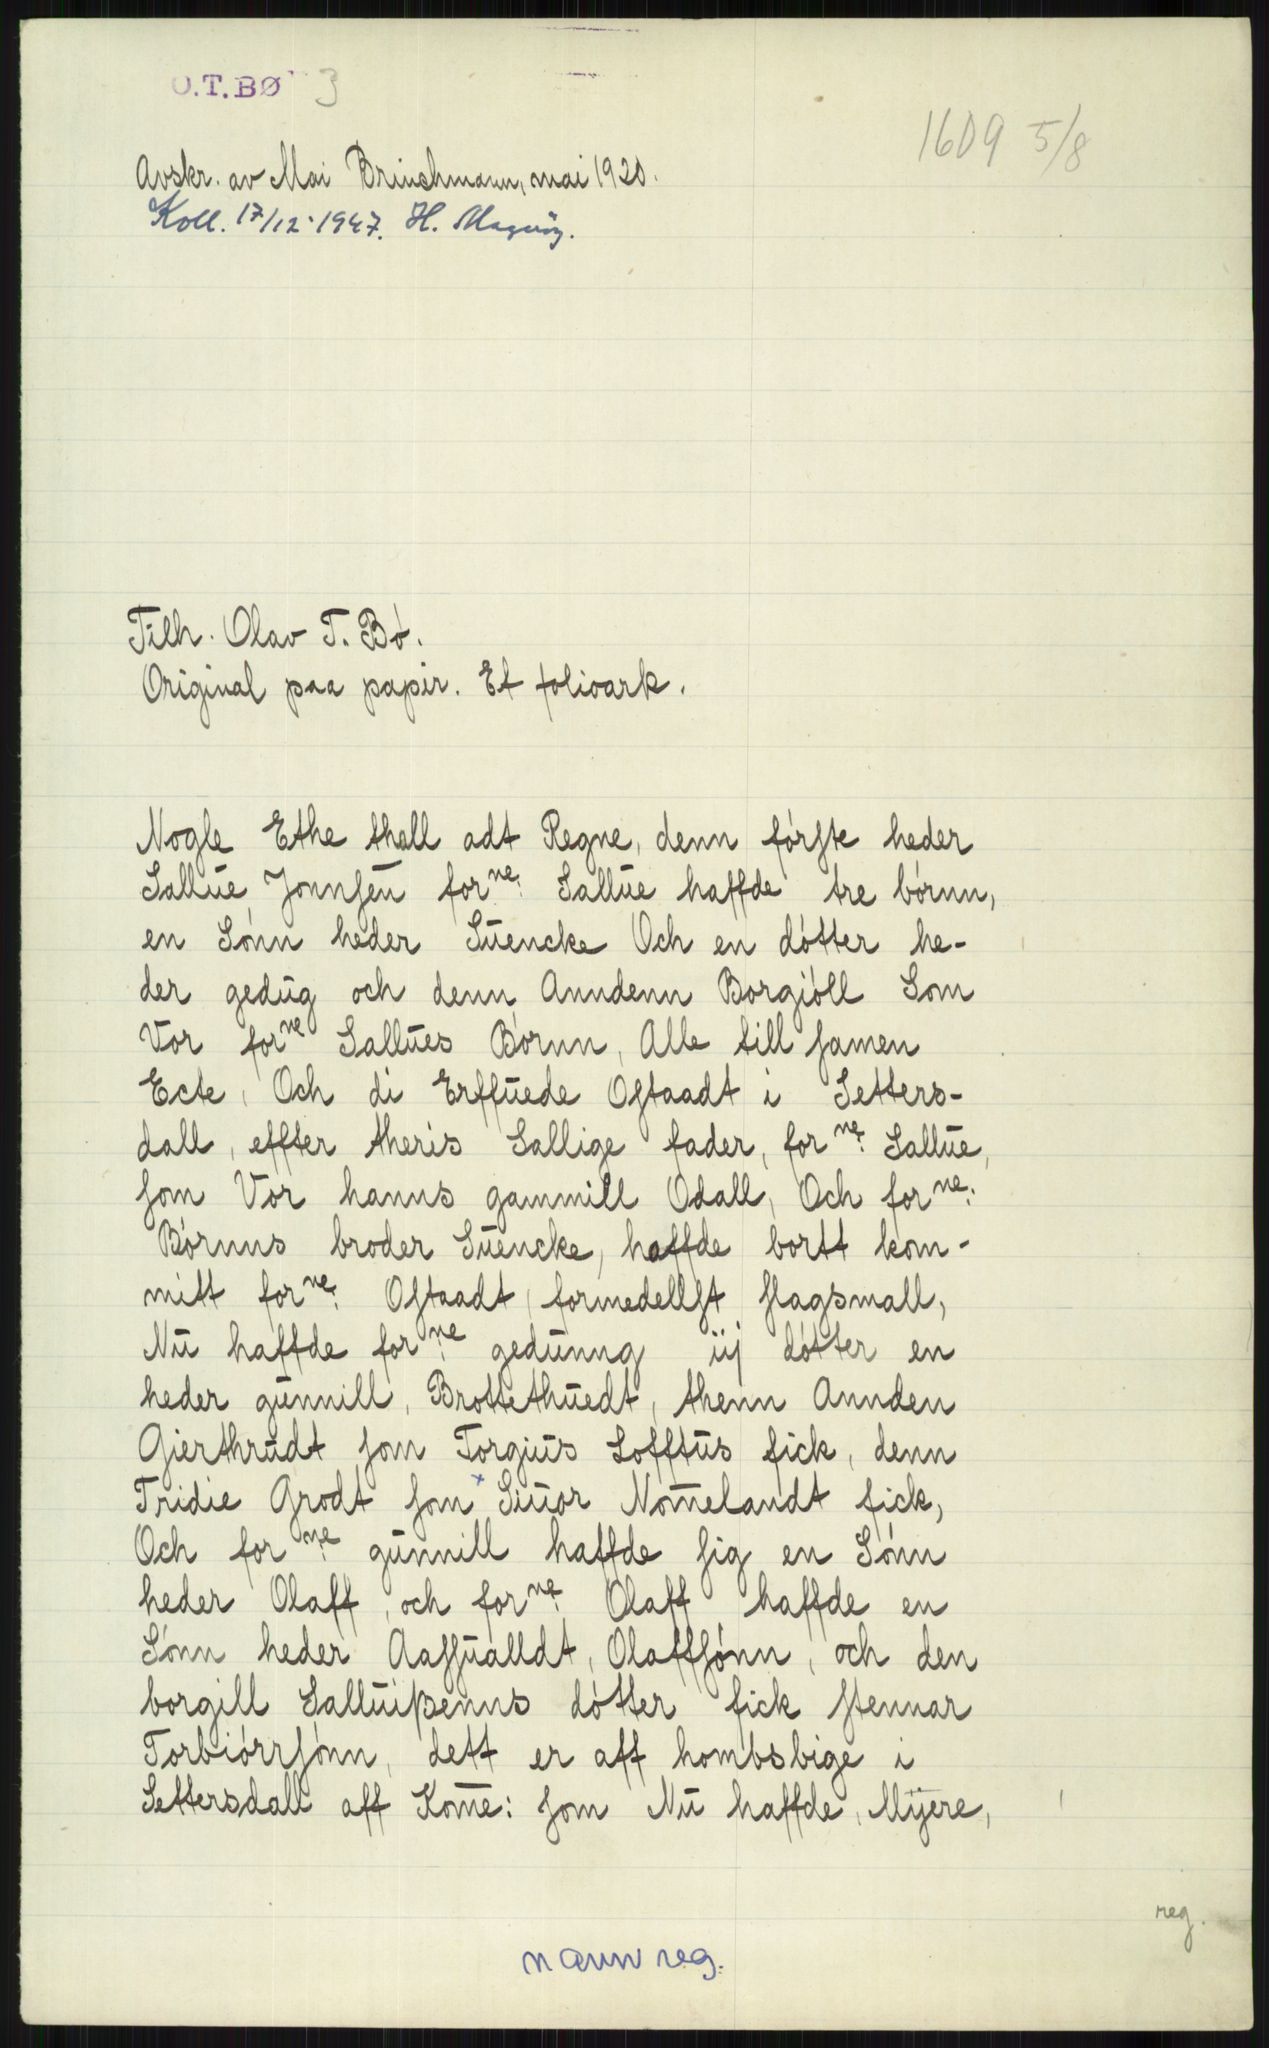 O.T.BØ 3
1609 5/8
Avskr. av Mai Brinchmann, mai 1920.
Koll. 17/12-1947. H.
Tilh. Olav T. Bø.
Original paa papir. Et folioark.
Nogle Ethe thall adt Regne, denn førfte heder
Sallŭe Jonnſen forne: Sallŭe haffde tre børnn,
en Sønn heder Sŭencke Och en dótter he-
der gedŭg och denn Anndenn Borgiöll Som
Vor forne Sallŭes Børnn, Alle till ſamen
Ecte, Och di Erffŭede Oſtaadt i Setters-
dall, effter theris Sallige fader, forne: Sallŭe,
ſom Vor hanns gammill Odall, Och forne:
Børnns broder Sŭencke, haffde bortt kom-
mitt forne: Oſtaadt, formedellſt ſlagsmall,
Nŭ haffde forne: gedŭnng iij dótter en
heder gŭnnill, Brottethŭedt, thenn Annden
Gierthrŭdt ſom Torgiŭs Lofftŭs fick, denn
Tridie Grodt ſom x Siŭor Nom̄elandt fick,
Och forne: gŭnnill haffde ſig en Sønn
heder Olaff, och forne: Olaff haffde en
Sønn heder Aaſſŭalldt, Olaffſønn, och den
borgill Sallŭißenns dótter fick ſtennar
Torbiórrſónn, dett er aff hombsbige i
Settersdall aff Kom̄e: ſom Nŭ haffde, Mÿere,
reg.
navn reg.